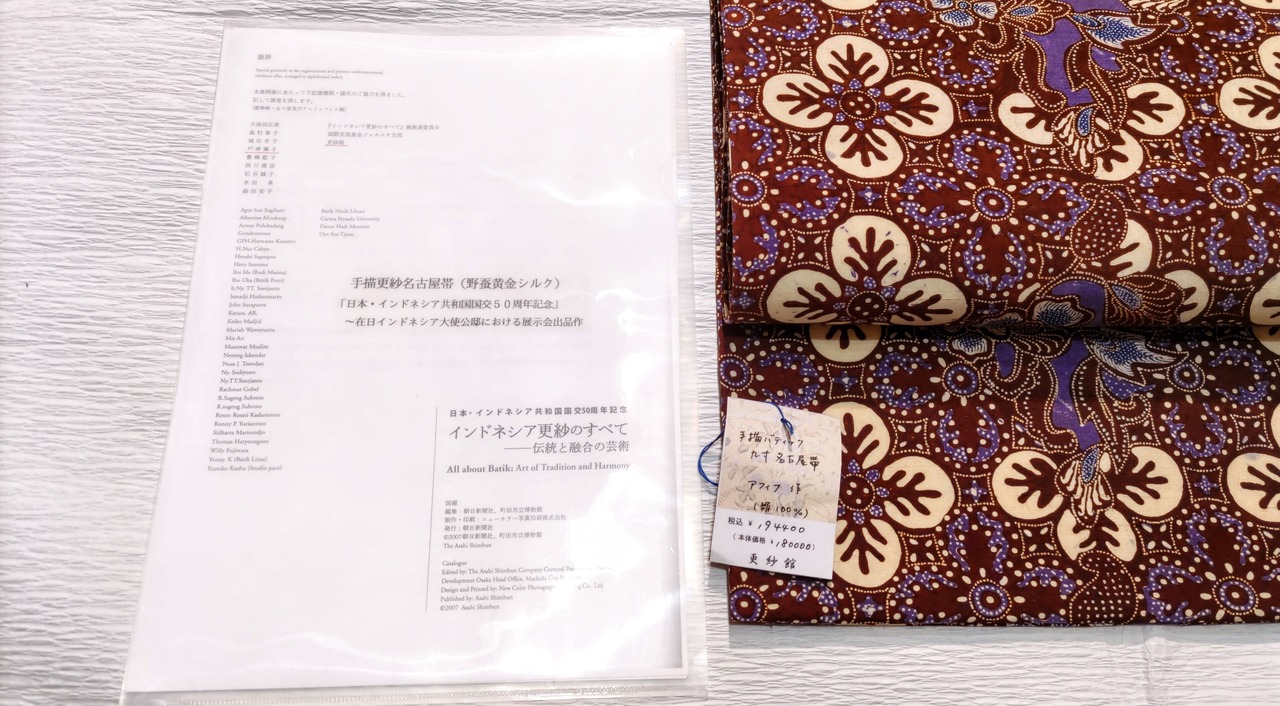 謝辞
Special gratitude to the organizations and persons undermentioned.
(without titles, arranged in alphabetical order)
本展開催にあたって下記諸機関・諸氏のご協力を得ました。
記して謝意を表します。
『インドネシア更紗のすべて』展推進委員会
更紗館
戸津満子
Agus Sun Sugiharto
Albertine Mindorop
Gondomono
GPH.Herwasto Kusumo
H.Nur Cahyo
Hendri Suprapto
Heru Santoso
Ibu Ida (Budi Mastra)
Ibu Uba (Batik Putri)
Ir.Ny. TT. Soerjanto
Iswadji Hadisumarto
John Saraputra
Kanara. AR.
Keiko Madjid
Mariah Waworuntu
Mis Ari
Munawar Muslim
Neneng Iskandar
Nusa J. Tsendan
Ny. Sudiyono
Ny.TT.Soerjanto
Rachmat Gobel
R.Sugeng Subroto
R.sugeng Subroto
Retno Rosati Kadarisman
Ronny P. Yuriantoro
Sidharta Martoredjo
Thomas Haryonagoro
Willy Fujiwara
Yenny. K (Batik Linsa)
Yumiko Kashu (Studio pace)
Batik Nitik Jchsan
Carma Persada University
Danar Hadi Museum
Oey Soe Tjoen
手描更紗名古屋帯（野蚕黄金シルク）
「日本・インドネシア共和国国交５０周年記念」
～在日インドネシア大使公邸における展示会出品作
日本・インドネシア共和国国交50周年記念
インドネシア更紗のすべて
――伝統と融合の芸術
All about Batik: Art of Tradition and Harmony
図録
編集：朝日新聞社、町田市立博物館
制作・印刷：ニューカラー写真印刷株式会社
発行：朝日新聞社
©2007 朝日新聞社、町田市立博物館
The Asahi Shimbun
Catalogue
Edited by: The Asahi Shimbun Company Cultural
Development Osaka Head Office, Machida City
Design and Printed by: New Color Co., Ltd.
Published by: Asahi Shimbun
©2007 Asahi Shimbun
手描バティック
九寸名古屋帯
アフィフ 作
(絹100%)
税込 ¥194400
(本体価格 ¥180000)
更紗館